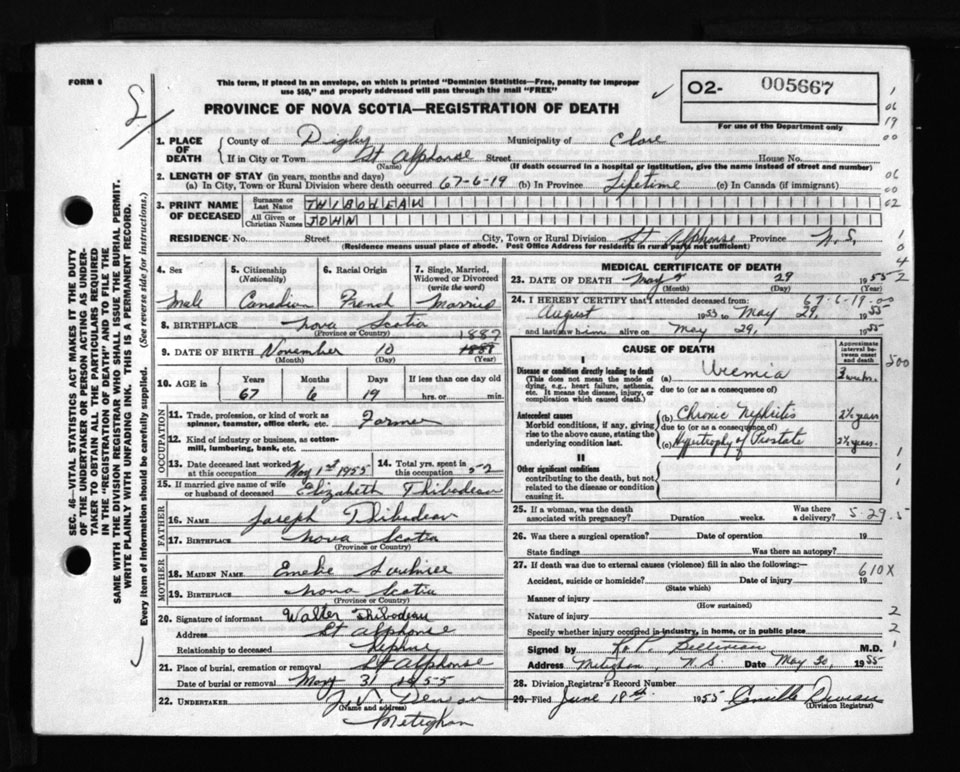 FORM 6
This form, if placed in an envelope, on which is printed "Dominion Statistics—Free, penalty for improper
use $50," and properly addressed will pass through the mail "FREE"
PROVINCE OF NOVA SCOTIA—REGISTRATION OF DEATH
O2- 005667
For use of the Department only
1. PLACE OF DEATH County of Digby Municipality of Clare
If in City or Town St Alphonse Street House No.
(Name) (If death occurred in a hospital or institution, give the name instead of street and number)
2. LENGTH OF STAY (in years, months and days)
(a) In City, Town or Rural Division where death occurred 67-6-19 (b) In Province Lifetime (c) In Canada (if immigrant)
3. PRINT NAME OF DECEASED Surname or Last Name THIBODEAU
All Given or Christian Names JOHN
RESIDENCE No. Street City, Town or Rural Division St Alphonse Province N.S.
(Residence means usual place of abode. Post Office Address for residents in rural parts not sufficient)
4. Sex 5. Citizenship (Nationality) 6. Racial Origin 7. Single, Married, Widowed or Divorced (write the word)
Male Canadian French Married
8. BIRTHPLACE Nova Scotia
(Province or Country)
1887
9. DATE OF BIRTH November 10
(Month) (Day) (Year)
10. AGE in Years Months Days If less than one day old
67 6 19 hrs. or min.
OCCUPATION
11. Trade, profession, or kind of work as spinner, teamster, office clerk, etc. Farmer
12. Kind of industry or business, as cotton-mill, lumbering, bank, etc.
13. Date deceased last worked at this occupation May 1st 1955 14. Total yrs. spent in this occupation 52
15. If married give name of wife or husband of deceased Elizabeth Thibodeau
FATHER
16. NAME Joseph Thibodeau
17. BIRTHPLACE Nova Scotia
(Province or Country)
MOTHER
18. MAIDEN NAME
19. BIRTHPLACE Nova Scotia
(Province or Country)
20. Signature of informant Walter Thibodeau
Address St Alphonse
Relationship to deceased Nephew
21. Place of burial, cremation or removal St Alphonse
Date of burial or removal May 31 1955
22. UNDERTAKER
(Name and address)
Meteghan
MEDICAL CERTIFICATE OF DEATH
23. DATE OF DEATH May 29 1955
(Month) (Day) (Year)
24. I HEREBY CERTIFY that I attended deceased from: 67-6-19-00
August 1953 to May 29, 1955
and last saw him alive on May 29, 1955
CAUSE OF DEATH
Approximate interval between onset and death
I
Disease or condition directly leading to death (a) Uremia 3 weeks.
(This does not mean the mode of dying, e.g., heart failure, asthenia, etc. It means the disease, injury, or complication which caused death.) due to (or as a consequence of)
Antecedent causes (b) Chronic Nephritis 2½ years
Morbid conditions, if any, giving rise to the above cause, stating the underlying condition last. due to (or as a consequence of)
(c) Hypertrophy of Prostate 2½ years.
II
Other significant conditions
contributing to the death, but not related to the disease or condition causing it.
25. If a woman, was the death associated with pregnancy? Duration weeks. Was there a delivery? 5-29-5
26. Was there a surgical operation? Date of operation 19
State findings Was there an autopsy?
27. If death was due to external causes (violence) fill in also the following:— 610X
Accident, suicide or homicide? Date of injury 19
(State which)
Manner of injury
(How sustained)
Nature of injury
Specify whether injury occurred in industry, in home, or in public place
Signed by P. Belliveau M.D.
Address Meteghan, N S Date May 30, 1955
28. Division Registrar's Record Number
29. Filed June 18th 1955 Camille
(Division Registrar)
SEC. 46—VITAL STATISTICS ACT MAKES IT THE DUTY
OF THE UNDERTAKER OR PERSON ACTING AS UNDER-
TAKER TO OBTAIN ALL THE PARTICULARS REQUIRED
IN THE "REGISTRATION OF DEATH" AND TO FILE THE
SAME WITH THE DIVISION REGISTRAR WHO SHALL ISSUE THE BURIAL PERMIT.
WRITE PLAINLY WITH UNFADING INK. THIS IS A PERMANENT RECORD.
Every item of information should be carefully supplied. (See reverse side for instructions.)
1
06
19
00
06
00
02
1
0
4
2
500
1
1
2
2
1